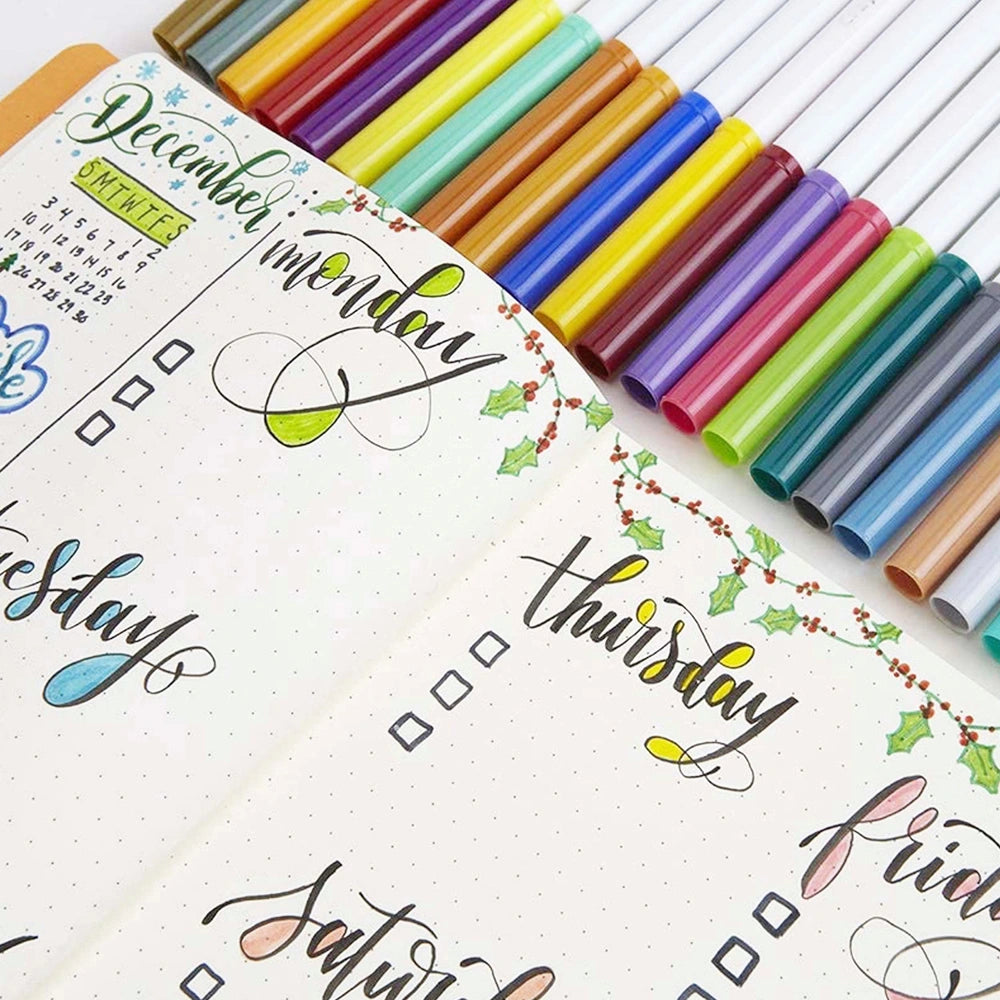 December
SMTWTFS
1 2
3 4 5 6 7 8 9
10 11 12 13 14 15 16
17 18 19 20 21 22 23
26 27 28 29 30
monday
tuesday
thursday